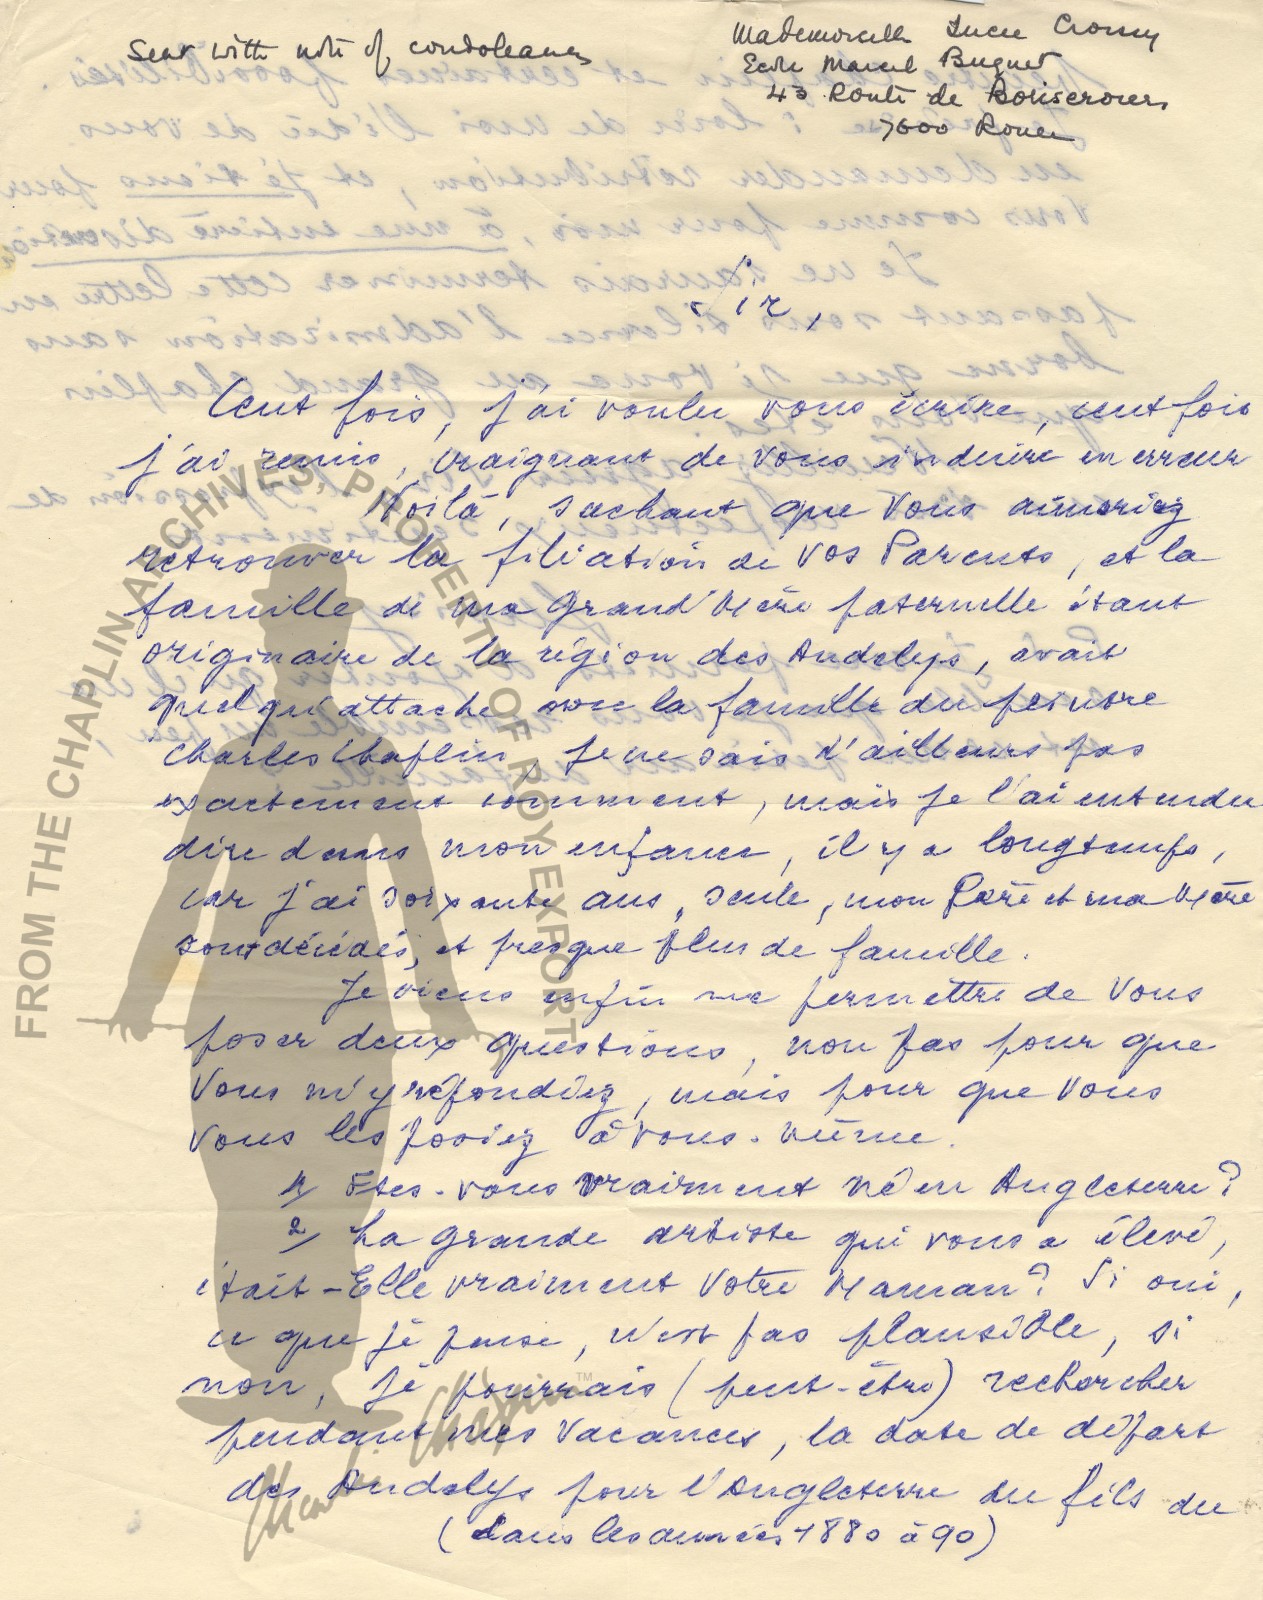 Sent with note of condoleances
Mademoiselle Lucie
Ecole Marcel Buguet
43 Route de
7600 Rouen
Sir,
Cent fois, j'ai voulu vous écrire, cent fois
j'ai remis, craignant de vous induire en erreur
Voilà, sachant que Vous aimeriez
retrouver la filiation de Vos Parents, et la
famille de ma Grand'Mère paternelle étant
originaire de la région des Andelys, avait
quelqu'attache avec la famille du peintre
Charles Chaplin, je ne sais d'ailleurs pas
exactement comment, mais je l'ai entendu
dire dans mon enfance, il y a longtemps,
car j'ai soixante ans, seule, mon Père et ma Mère
sont décédés, et presque plus de famille.
Je viens enfin me permettre de Vous
poser deux questions, non pas pour que
Vous m'y répondiez, mais pour que Vous
Vous les posiez à Vous-même.
1/ Etes-vous vraiment né en Angleterre?
2/ La grande artiste qui vous a élevé,
était-Elle vraiment Votre Maman? Si oui,
ce que je pense, n'est pas plausible, si
non, je pourrais (peut-être) rechercher
pendant mes Vacances, la date de départ
des Andelys pour l'Angleterre du fils du
(dans les années 1880 à 90)
FROM THE CHAPLIN ARCHIVES, PROPERTY OF ROY EXPORT
Charlie Chaplin™